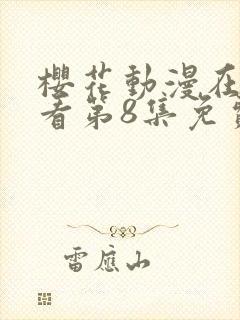 櫻花動漫在
看第8集免
雷應山